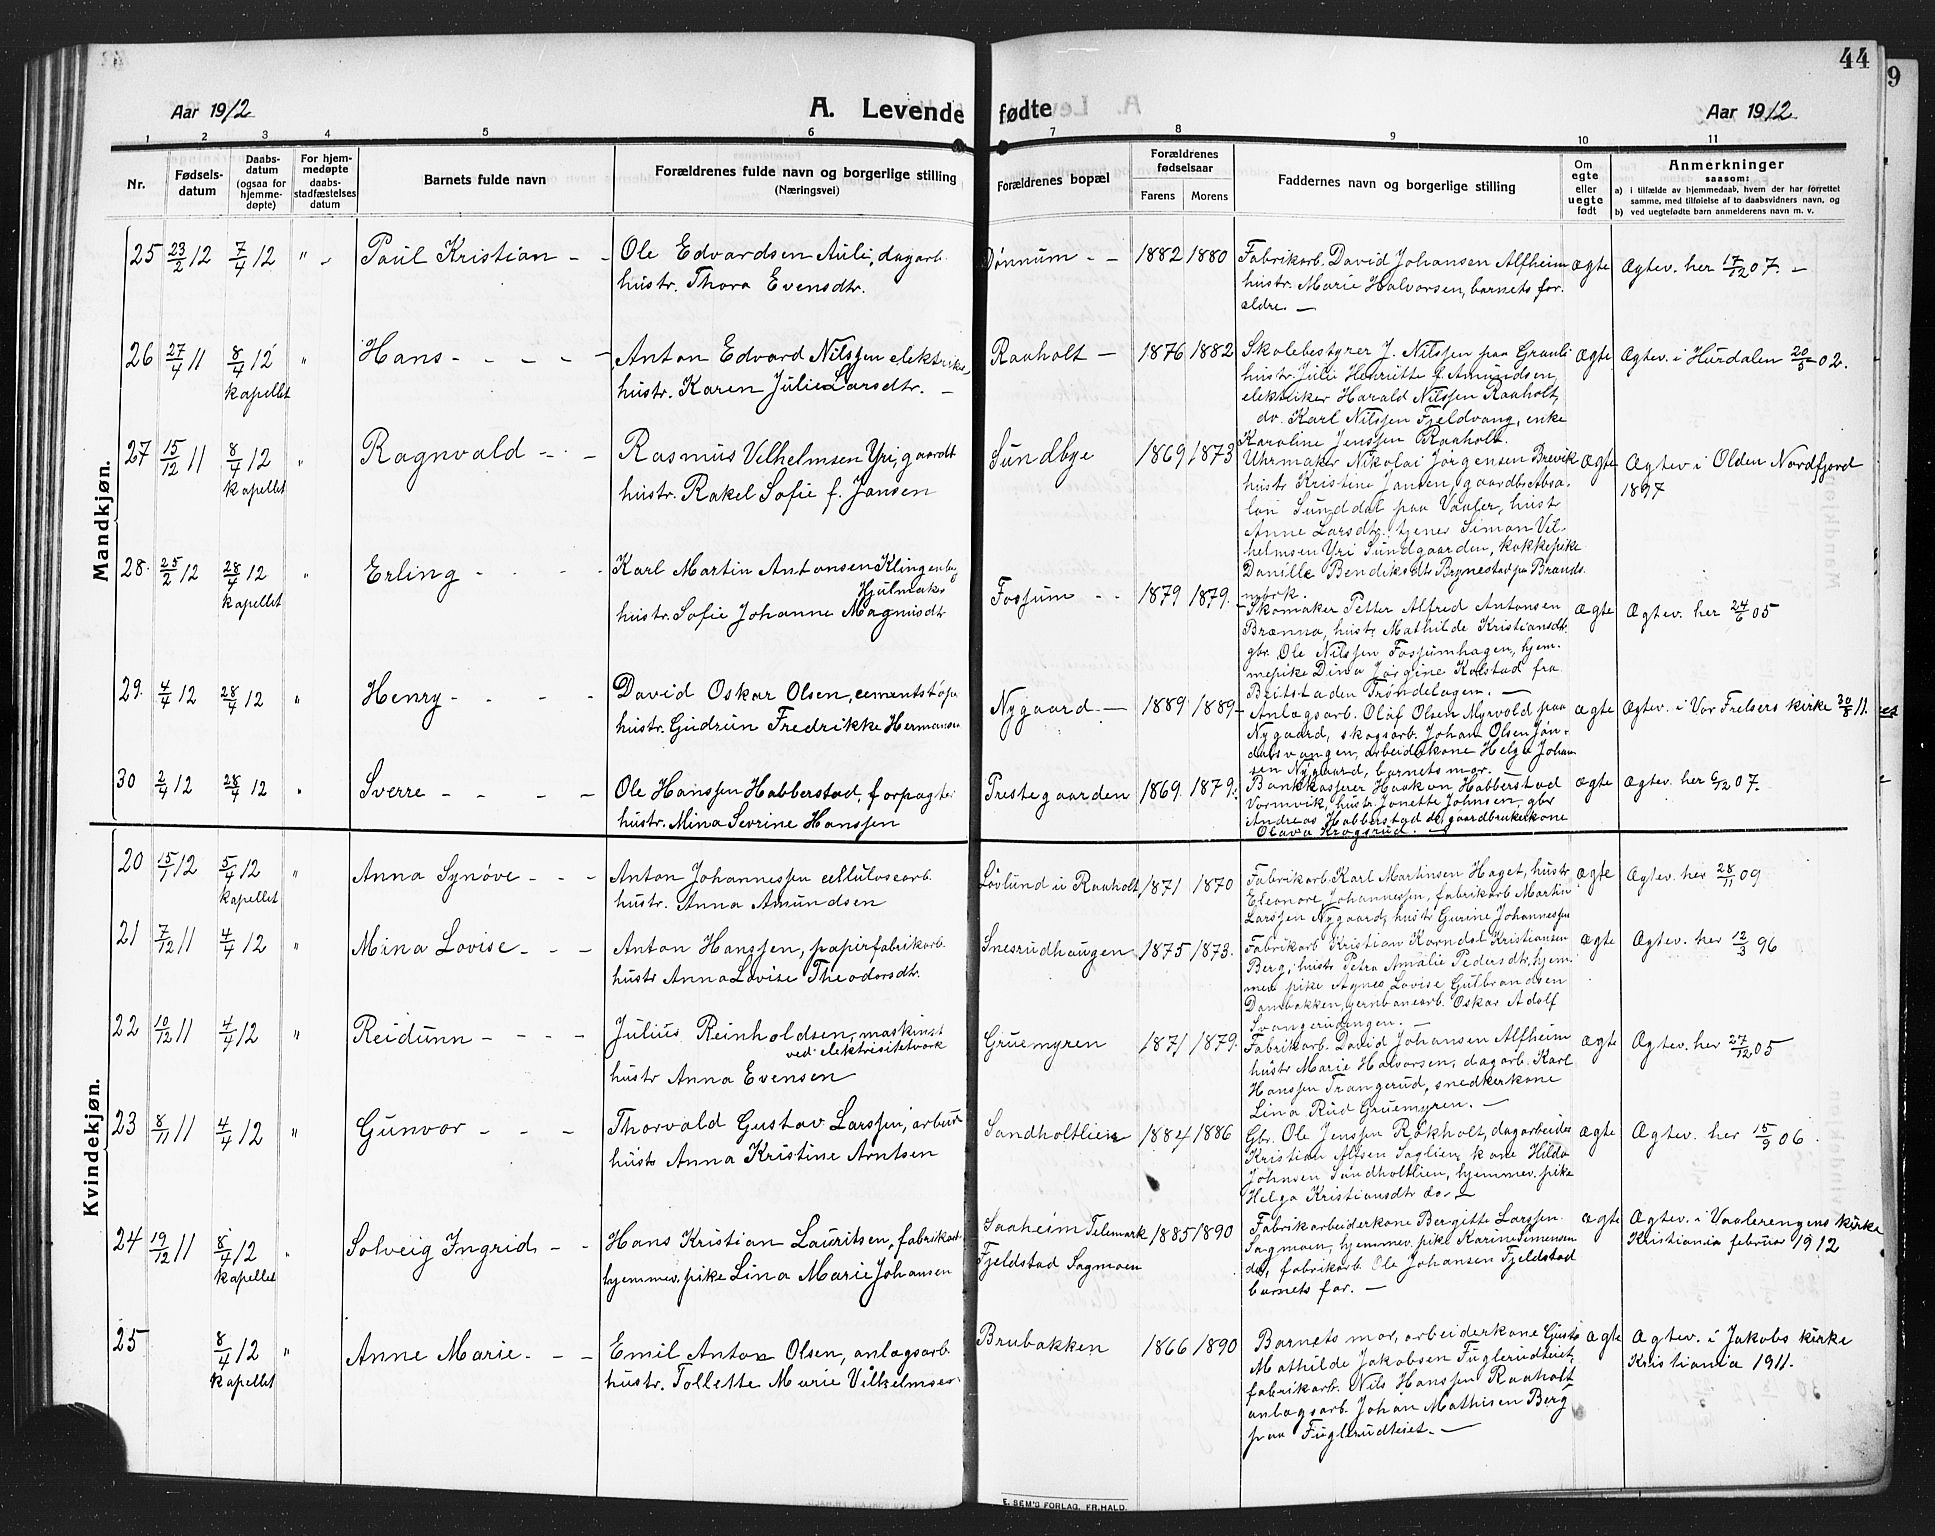 44
9
Aar 1912
A. Levende fødte
Aar 1912
1 2 3 4 5 6 7 8 9 10 11
Nr.
Fødsels-
datum
Daabs-
datum
(ogsaa for
hjemme-
døpte)
For hjem-
medøpte
daabs-
stadfæstelses
datum
Barnets fulde navn
Forældrenes fulde navn og borgerlige stilling
(Næringsvei)
Forældrenes bopæl
Forældrenes
fødselsaar
Farens Morens
Faddernes navn og borgerlige stilling
Om
egte
eller
uegte
født
Anmerkninger
saasom:
a) i tilfælde av hjemmedaab, hvem der har forrettet
samme, med tilføielse af to daabsvidners navn, og
b) ved uegtefødte barn anmelderens navn m. v.
Mandkjøn.
25 23/2 12 7/4 12 " Paul Kristian - -
Ole Edvardsen Auli, dagarb.
hustr. Thora Evensdtr.
Dønnum - - 1882 1880
Fabrikarb. David Johansen Alfheim
hustr. Marie Halvorsen, barnets for.
ældre. -
ægte Ægtev. her 17/12 07. -
26 27/4 11 8/4 12 "
kapellet
Hans - - - - -
Anton Edvard Nilssen elektriker
hustr. Karen Julie Larsdtr. -
Raaholt - 1876 1882
Skolebestyrer J. Nilssen paa Grauli
hustr. Juli Henritte f. Amundsen,
elektriker Harald Nilssen Raaholt,
do. Karl Nilssen Fjeldvang, enke
Karoline Jenssen Raaholt.
ægte Ægtev. i Hurdalen 20/5 02.
27 15/12 11 8/4 12 "
kapellet
Ragnvald - - -
Rasmus Vilhelmsen Yri, gaardt
hustr. Rakel Sofie f. Jansen
Sundbye 1869 1873
Uhrmaker Nikolai Jørgensen Brevik
hustr. Kristine Jansen, gaardbr. Absa-
lon Sunddal paa Vaaler, hustr
Anne Larsdtr. tjener Simon Vil-
helmsen Yri Sundgaarden, kokkepike
Danille Bendiksdtr Brynestad paa Brands-
mork.
ægte Ægtev i Olden Nordfjord
1897
28. 25/2 12 28/4 12 "
kapellet
Erling - - - -
Karl Martin Antonsen Klingenberg
Hjulmaker
hustr. Sofie Johanne Magnusdtr
Fossum - - 1879 1879. -
Skomaker Petter Alfred Antonsen
Brænna, hustr. Mathilde Kristiansdtr.
gbr. Ole Nilssen Fossumhagen, hjem-
mepike Dina Jørgine Kolstad fra
Beitstaden Trøndelagen. -
ægte Ægtev. her 24/6 05
29. 4/4 12 28/4 12 " Henry - - - -
David Oskar Olsen, cementstøper
hustr. Gudrun Fredrikke Hermansen
Nygaard - - 1889 1889 -
Anlægsarb. Olaf Olsen Myrvold paa
Nygaard, skogsarb. Johan Olsen Jøn-
dalsvangen, arbeiderkone Helga Johan-
sen Nygaard, barnets mor.
ægte Ægtev. i Vor Frelsers kirke 30/8 11.
30 2/4 12 28/4 12 " Sverre - - - -
Ole Hanssen Habberstad, forpagter
hustr. Mina Sevrine Hanssen
Prestegaarden 1869 1879.
Bankkasserer Haakon Habberstad
Vormvik, hustr. Janette Johnsen, gbr
Andreas Habberstad og gaardbrukerkone
Olava Krogsrud. -
ægte Ægtev. her 6/12 07.
Kvindekjøn.
20 15/1 12 5/4 12 "
kapellet
Anna Synøve - - -
Anton Johannessen cellulosearb.
hustr. Anna Amundsen
Løvlund i Raaholt 1871 1870
Fabrikarb. Karl Martinsen Haget, hustr.
Eleonore Johannessen, fabrikarb. Martin
Larssen Nygaard, hustr Gurine Johannessen
ægte Ægtev. her 28/11 09
21 7/12 11 4/4 12 " Mina Lovise - - -
Anton Hanssen, papirfabrikarb.
hustr Anna Lovise Theodorsdtr.
Snesrudhaugen 1875 1873.
Fabrikarb Kristian Korndal Kristiansen
Berg, hustr Petra Amalie Pedersdtr, hjem-
mev pike Agnes Lovise Gulbrandsen
Dambakken, jernbanearb. Oskar Adolf
Svangerudengen. -
ægte Ægtev. her 12/3 96
22 10/12 11 4/4 12 " Reidunn - - - -
Julius Reinholdsen, maskinist
ved elektrisitetverk
hustr Anna Evensen
Gruemyren 1871 1879.
Fabrikarb. David Johansen Alfheim
hustr Marie Halvorsen, dagarb. Karl
Hanssen Trangerud, snedkerkone
Lina Rud Gruemyren. -
ægte Ægtev. her 27/12 05
23 8/11 11 4/4 12 " Gunvor - - -
Thorvald Gustav Larssen, arbeid.
hustr Anna Kristine Arntsen
Sandholtlien 1884 1886
Gbr. Ole Jenssen Røkholt, dagarbeider
Kristian Alfsen Saglien, kone Hilda
Johnsen Sandholtlien, hjemmev. pike
Helga Kristiansdtr do. -
ægte Ægtev. her 15/9 06.
24 19/12 11 8/4 12 "
kapellet
Solveig Ingrid - -
Hans Kristian Lauritsen, fabrikarb
hjemmev. pike Lina Marie Johansen
Saaheim Telemark 1885 1890
Fjeldstad Sagmoen
Fabrikarbeiderkone Bergitte Larssen
Sagmoen, hjemmev. pike Karine Simensen
do, fabrikarb. Ole Johansen Fjeldstad
barnets far. -
ægte Ægtev. i Vaalerengens kirke
Kristiania februar 1912
25 8/4 12 "
kapellet
Anne Marie - - -
Emil Anton Olsen, anlægsarb.
hustr. Tollette Marie Vilhelmsen
Brubakken 1866 1890
Barnets mor, arbeiderkone Gusta
Mathilde Jakobsen Fuglerudteiet,
fabrikarb. Nils Hanssen Raaholt
anlægsarb. Johan Mathisen Berg
paa Fuglerudteiet. -
ægte Ægtev. i Jakobs kirke
Kristiania 1911.
E. SEM'S FORLAG, FR.HALD.